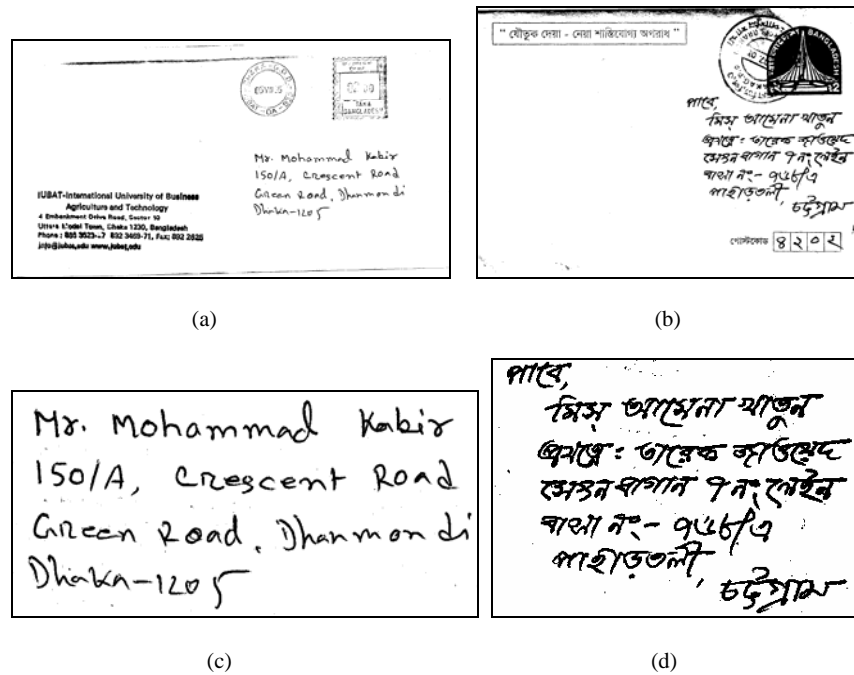 05 VII 05
02.00
TAKA
BANGLADESH
Mr. Mohammad Kabir
150/A, Crescent Road
Green Road, Dhanmondi
Dhaka-1205
IUBAT-International University of Business
Agriculture and Technology
4 Embankment Drive Road, Sector 10
Uttara Model Town, Dhaka 1230, Bangladesh
(a)
" যৌতুক দেয়া - নেয়া শাস্তিযোগ্য অপরাধ "
BANGLADESH
পাবে,
মিস্ আমেনা খাতুন
প্রযত্নে : তারেক জাওয়েদ
৭ নং লেইন
বাসা নং - ৭৬৮/এ
পাহাড়তলী,
চট্টগ্রাম
পোস্টকোড ৪ ২ ০ ২
(b)
Mr. Mohammad Kabir
150/A, Crescent Road
Green Road, Dhanmondi
Dhaka-1205
(c)
পাবে,
মিস্ আমেনা খাতুন
প্রযত্নে : তারেক জাওয়েদ
৭ নং লেইন
বাসা নং - ৭৬৮/এ
পাহাড়তলী,
চট্টগ্রাম
(d)